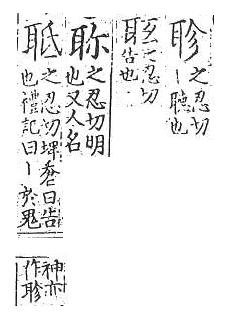 聄
之忍切
丨聴也
之忍切
耳告也
之忍切明
也又人名
之忍切埤蒼曰告
也禮記曰丨於鬼
神亦
作聄